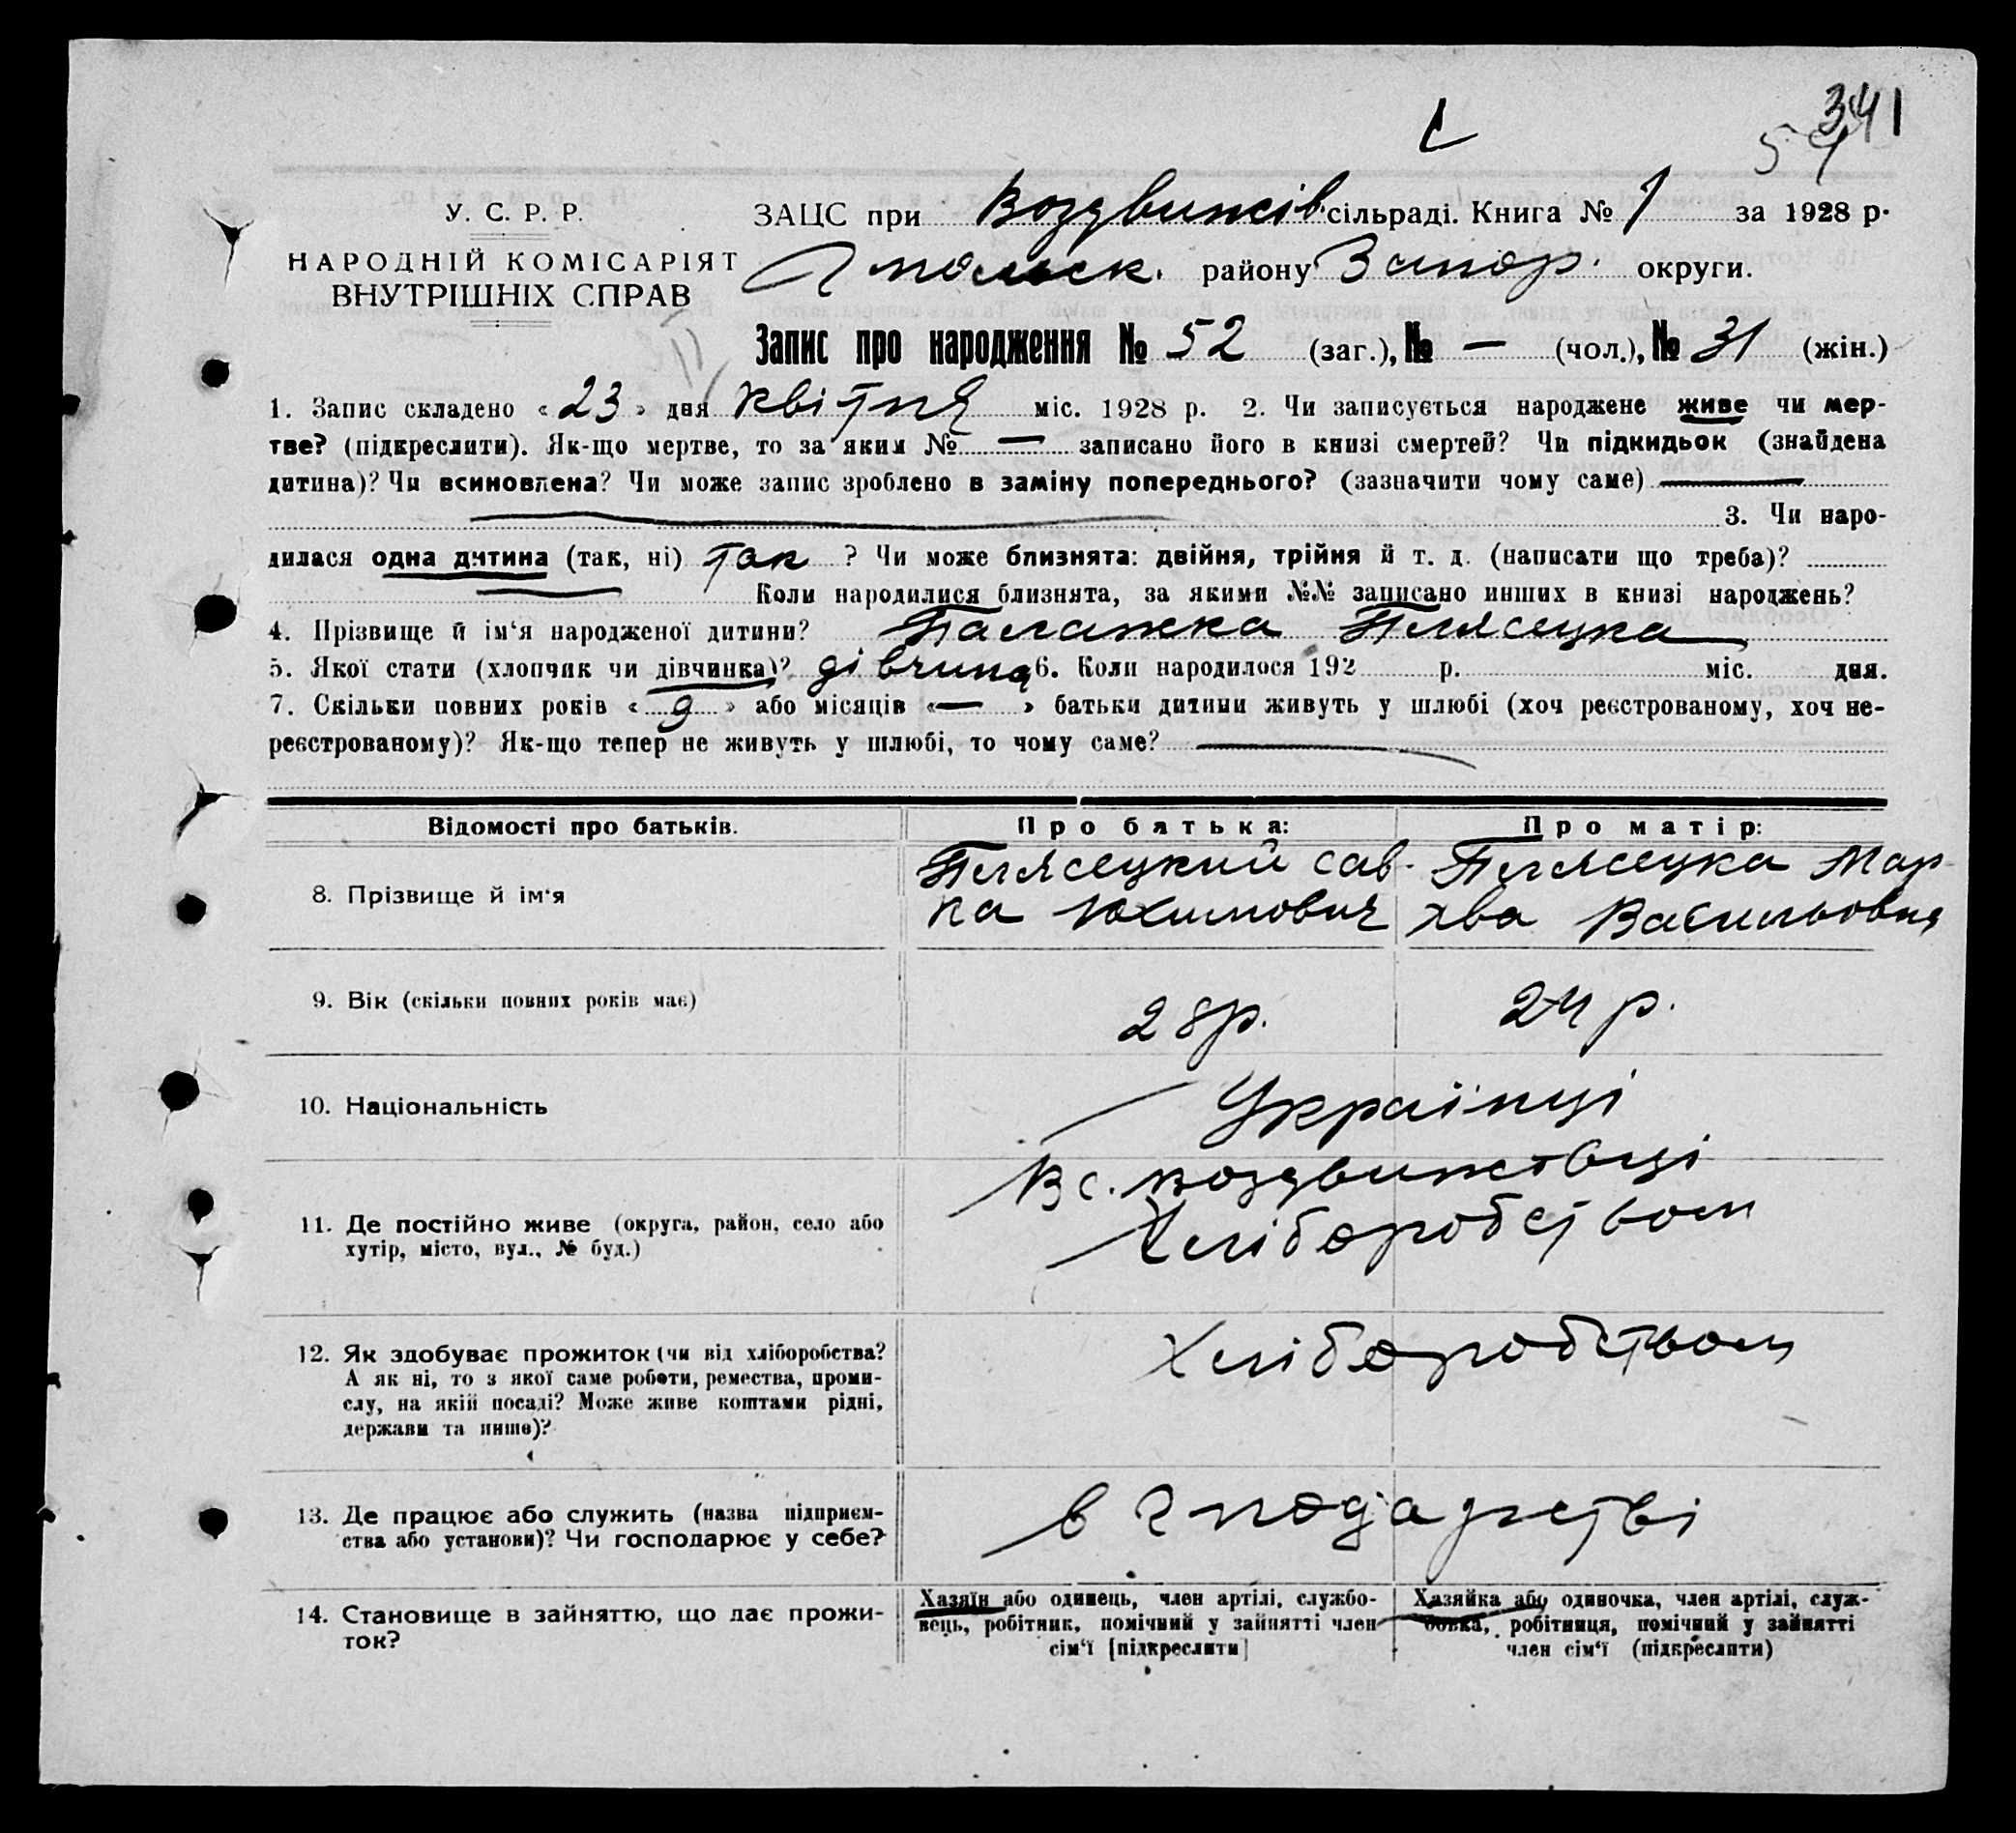 341
54
У. С. Р. Р.
НАРОДНІЙ КОМІСАРІЯТ
ВНУТРІШНІХ СПРАВ
ЗАЦС при Воздвижів сільраді. Книга № 1 за 1928 р.
району Запор. округи.
Запис про народження № 52 (заг.), № — (чол.), № 31 (жін.)
1. Запис складено «23» дня квітня міс. 1928 р. 2. Чи записується народжене живе чи мер-
тве? (підкреслити). Як-що мертве, то за яким № — записано його в книзі смертей? Чи підкидьок (знайдена
дитина)? Чи всиновлена? Чи може запис зроблено в заміну попереднього? (зазначити чому саме) —
3. Чи наро-
дилася одна дитина (так, ні) так ? Чи може близнята: двійня, трійня й т. д. (написати що треба)?
Коли народилися близнята, за якими №№ записано инших в книзі народжень?
4. Прізвище й ім‘я народженої дитини? Палажка Пилясецка
5. Якої стати (хлопчик чи дівчинка)? дівчина 6. Коли народилося 192 р. міс. дня.
7. Скільки повних років «9» або місяців «—» батьки дитини живуть у шлюбі (хоч реєстрованому, хоч не-
реєстрованому)? Як-що тепер не живуть у шлюбі, то чому саме? —
Відомості про батьків. Про батька: Про матір:
8. Прізвище й ім‘я
Пилясецкий Сав- Пилясецка Мар-
ка Юхимович хва Васильовна
9. Вік (скільки повних років має) 28 р. 24 р.
10. Національність Українці
11. Де постійно живе (округа, район, село або
хутір, місто, вул., № буд.)
В с. Воздвижевці
Хліборобством
12. Як здобуває прожиток (чи від хліборобства?
А як ні, то з якої саме роботи, ремества, проми-
слу, на якій посаді? Може живе коштами рідні,
держави та инше)?
Хліборобством
13. Де працює або служить (назва підприєм-
ства або установи)? Чи господарює у себе?
в
14. Становище в зайняттю, що дає прожи-
ток?
Хазяїн або одинець, член артілі, службо-
вець, робітник, помічний у зайнятті член
сім‘ї [підкреслити]
Хазяйка або одиночка, член артілі, служ-
бовка, робітниця, помічний у зайнятті
член сім‘ї (підкреслити)